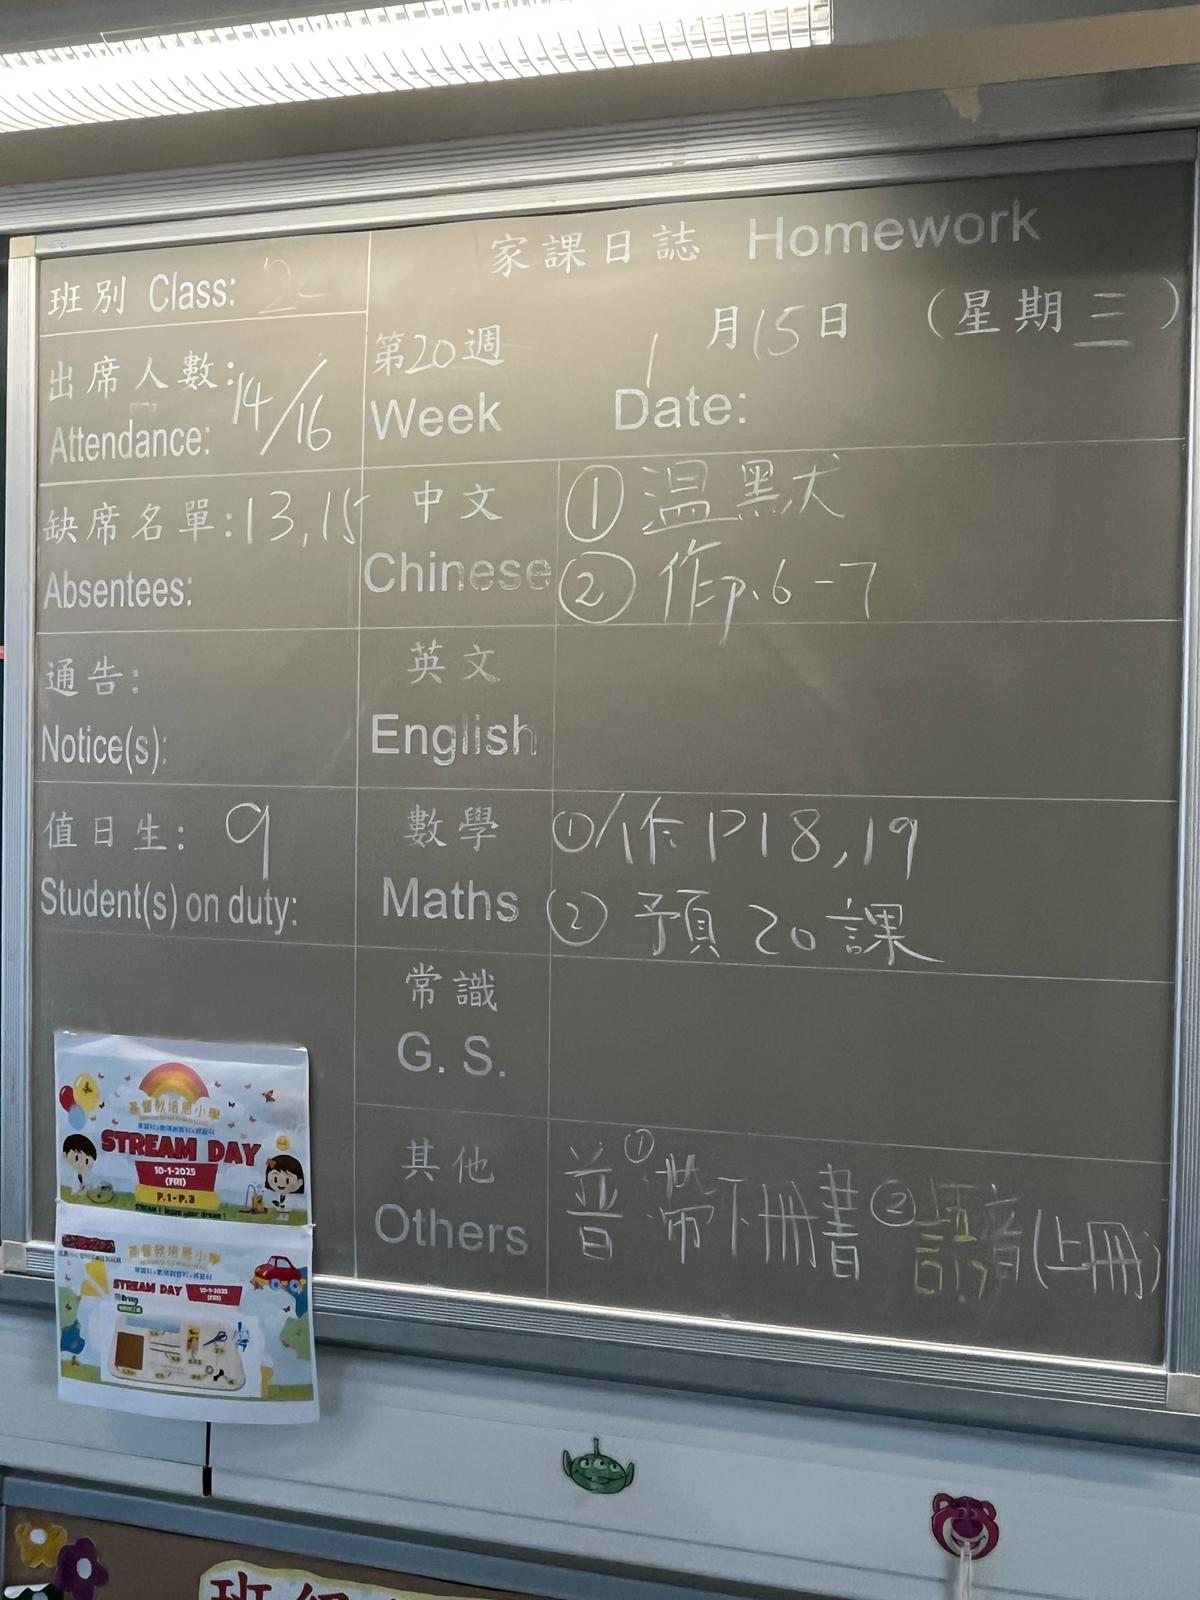 家課日誌 Homework
班別 Class: 2C
出席人數: 14/16
Attendance:
第20週
Week
1月15日 (星期三)
Date:
缺席名單: 13,15
Absentees:
中文
Chinese
① 温黙犬
② 作p.6-7
通告:
Notice(s):
英文
English
值日生: 9
Student(s) on duty:
數學
Maths
① 作 P18,19
② 預 20 課
常識
G. S.
其他
Others
普 ①帶下冊書 ②語音(上冊)
基督教培恩小學
STREAM DAY
10-1-2025
(FRI)
P.1-P.3
基督教培恩小學
STREAM DAY
10-1-2025
(FRI)
Bring